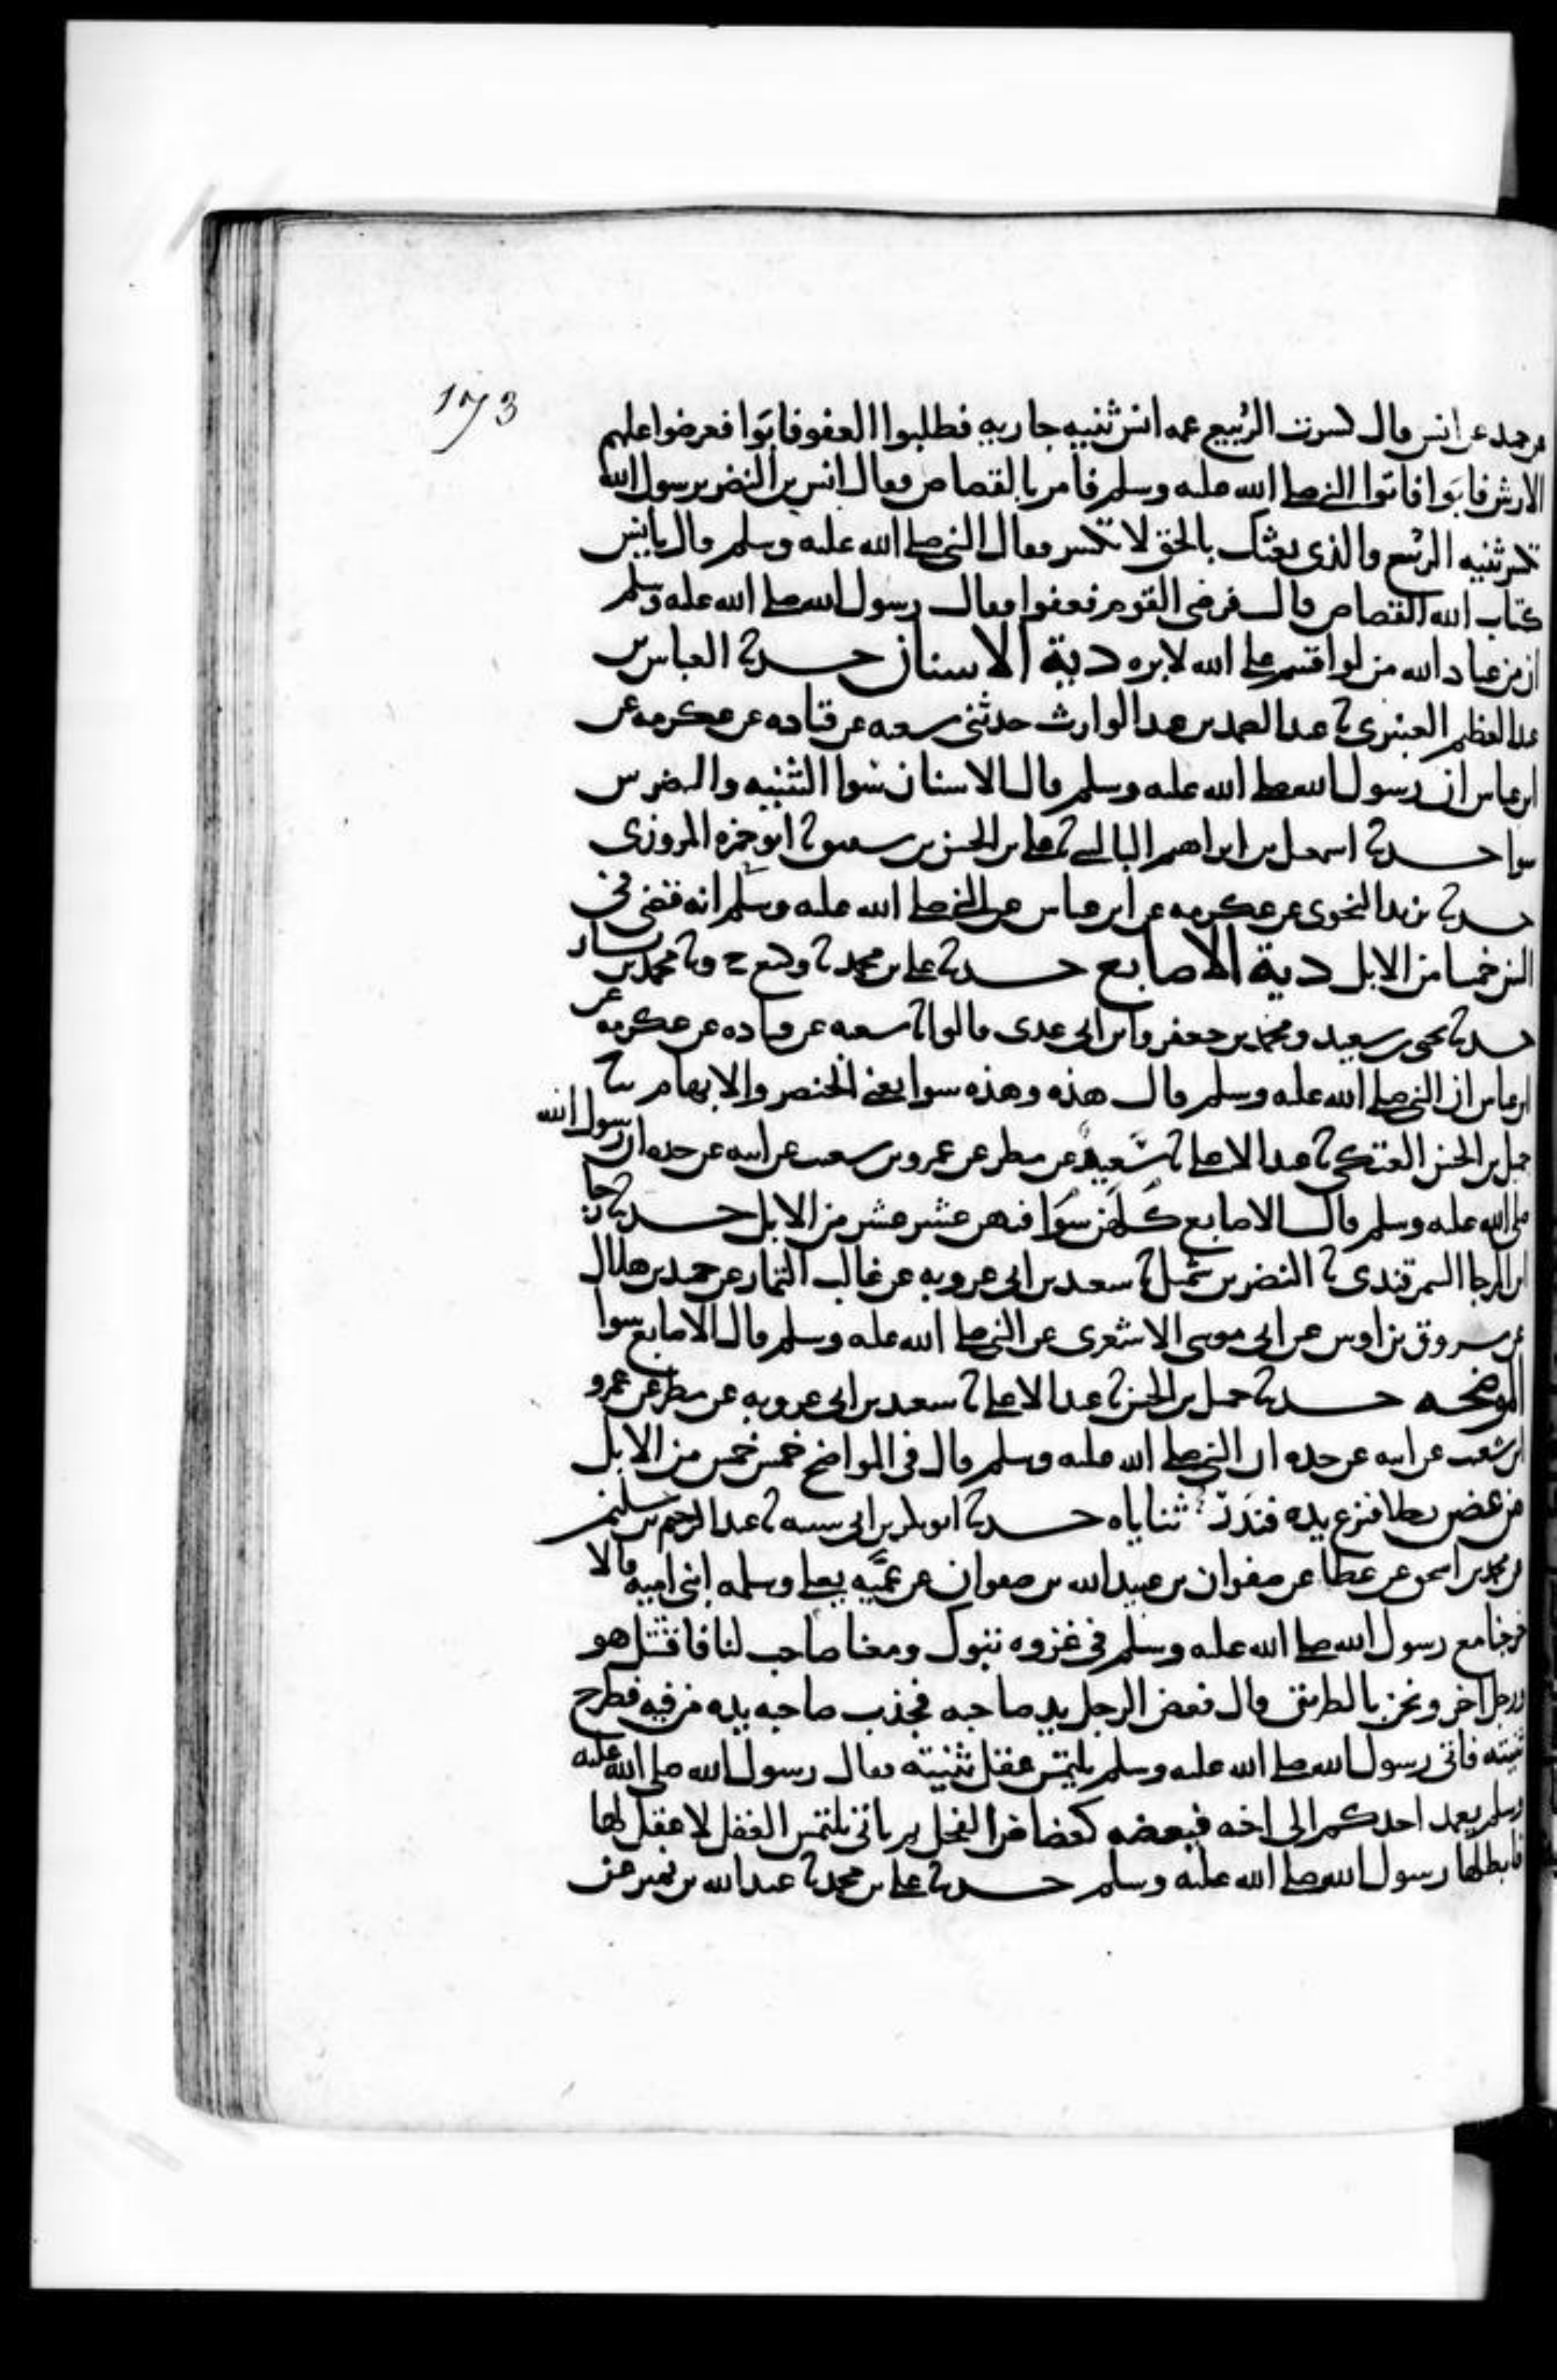 173
عن حميد عن انس قال كسرت الربيع عمه انس ثنيه جاريه فطلبوا العفو فابوا فعرضوا عليهم
الارش فابوا فاتوا النبي صلى الله عليه وسلم فامر بالقصاص فقال انس بن النضر يرسول الله
تكسر ثنيه الربيع والذي بعثك بالحق لا تكسر فقال النبي صلى الله عليه وسلم قال يانس
كتاب الله القصاص قال فرضى القوم فعفوا فقال رسول الله صلى الله عليه وسلم
ان من عباد الله من لو اقسم على الله لابره دية الاسنان حدثنا العباس بن
عبد العظيم العنبري ثنا عبد الصمد بن عبد الوارث حدثني شعبه عن قتاده عن عكرمه عن
ابن عباس ان رسول الله صلى الله عليه وسلم قال الاسنان سوا الثنيه والضرس
سوا حدثنا اسمعيل بن ابراهيم البالسي ثنا على بن الحسن بن شقيق ثنا ابو حمزه المروزى
حدثنا يزيد النحوى عن عكرمه عن ابن عباس عن النبي صلى الله عليه وسلم انه قضى في
السن خمسا من الابل دية الاصابع حدثنا على بن محمد ثنا وكيع ح وثنا محمد بن بشار
حدثنا يحيى بن سعيد ومحمد بن جعفر وابن ابى عدى قالوا ثنا شعبه عن قتاده عن عكرمه عن
ابن عباس ان النبي صلى الله عليه وسلم قال هذه وهذه سوا يعني الخنصر والابهام ثنا
جميل بن الحسن العتكي ثنا عبد الاعلى ثنا سعيد عن مطر عن عمرو بن شعيب عن ابيه عن جده ان رسول الله
صلى الله عليه وسلم قال الاصابع كلهن سوا فيهن عشر عشر من الابل حدثنا رجا
ابن الرجا السمرقندى ثنا النضر بن شميل ثنا سعيد بن ابى عروبه عن غالب التمار عن حميد بن هلال
عن مسروق بن اوس عن ابى موسى الاشعرى عن النبي صلى الله عليه وسلم قال الاصابع سوا
الموضحه حدثنا جميل بن الحسن ثنا عبد الاعلى ثنا سعيد بن ابى عروبه عن مطر عن عمرو
ابن شعيب عن ابيه عن جده ان النبي صلى الله عليه وسلم قال في المواضح خمس خمس من الابل
من عض رجلا فنزع يده فندر ثناياه حدثنا ابو بكر بن ابى شيبه ثنا عبد الرحيم بن سليمن
عن محمد بن اسحق عن عطا عن صفوان بن عبيد الله بن صفوان عن عميه يعلى وسلمه ابنى اميه قالا
خرجنا مع رسول الله صلى الله عليه وسلم في غزوه تبوك ومعنا صاحب لنا فاقتتل هو
ورجل اخر ونحن بالطريق قال فعض الرجل يد صاحبه فجذب صاحبه يده من فيه فطرح
ثنيته فاتى رسول الله صلى الله عليه وسلم يلتمس عقل ثنيته فقال رسول الله صلى الله عليه
وسلم يعمد احدكم الى اخه فيعضه كعضاض الفحل ثم ياتى يلتمس العقل لا عقل لها
فابطلها رسول الله صلى الله عليه وسلم حدثنا على بن محمد ثنا عبد الله بن نمير عن